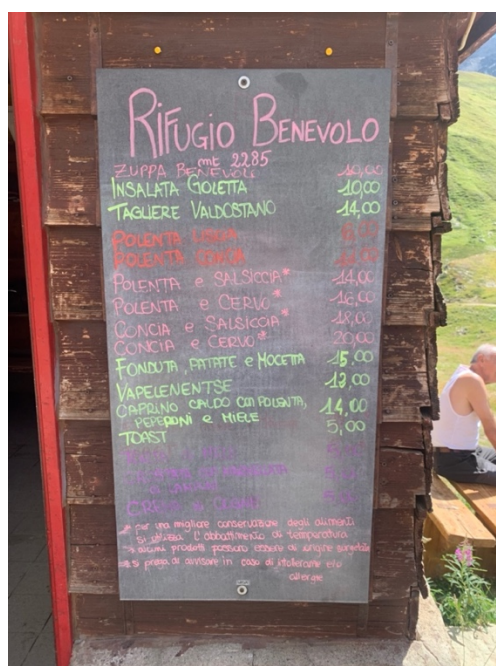 RIFUGIO BENEVOLO
mt 2285
ZUPPA BENEVOLO 10,00
INSALATA GOLETTA 10,00
TAGLIERE VALDOSTANO 14,00
POLENTA
POLENTA CONCIA
POLENTA e SALSICCIA* 14,00
POLENTA e CERVO* 16,00
CONCIA e SALSICCIA* 18,00
CONCIA e CERVO* 20,00
FONDUTA, PATATE e MOCETTA 15,00
VAPELENENTSE 12,00
CAPRINO CALDO CON POLENTA, 14,00
PEPERONI e MIELE
TOAST 5,00
* per una migliore conservazione degli alimenti
si utilizza l'abbattimento di temperatura
* alcuni prodotti possono essere di origine surgelata
si prega di avvisare in caso di intolleranze e/o
allergie